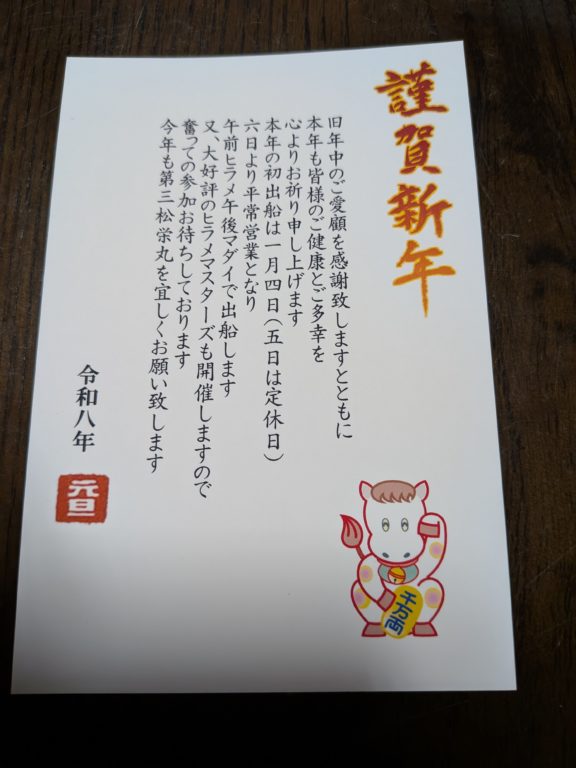 謹賀新年
旧年中のご愛顧を感謝致しますとともに
本年も皆様のご健康とご多幸を
心よりお祈り申し上げます
本年の初出船は一月四日(五日は定休日)
六日より平常営業となり
午前ヒラメ午後マダイで出船します
又、大好評のヒラメマスターズも開催しますので
奮っての参加お待ちしております
今年も第三松栄丸を宜しくお願い致します
令和八年
元旦
千万両